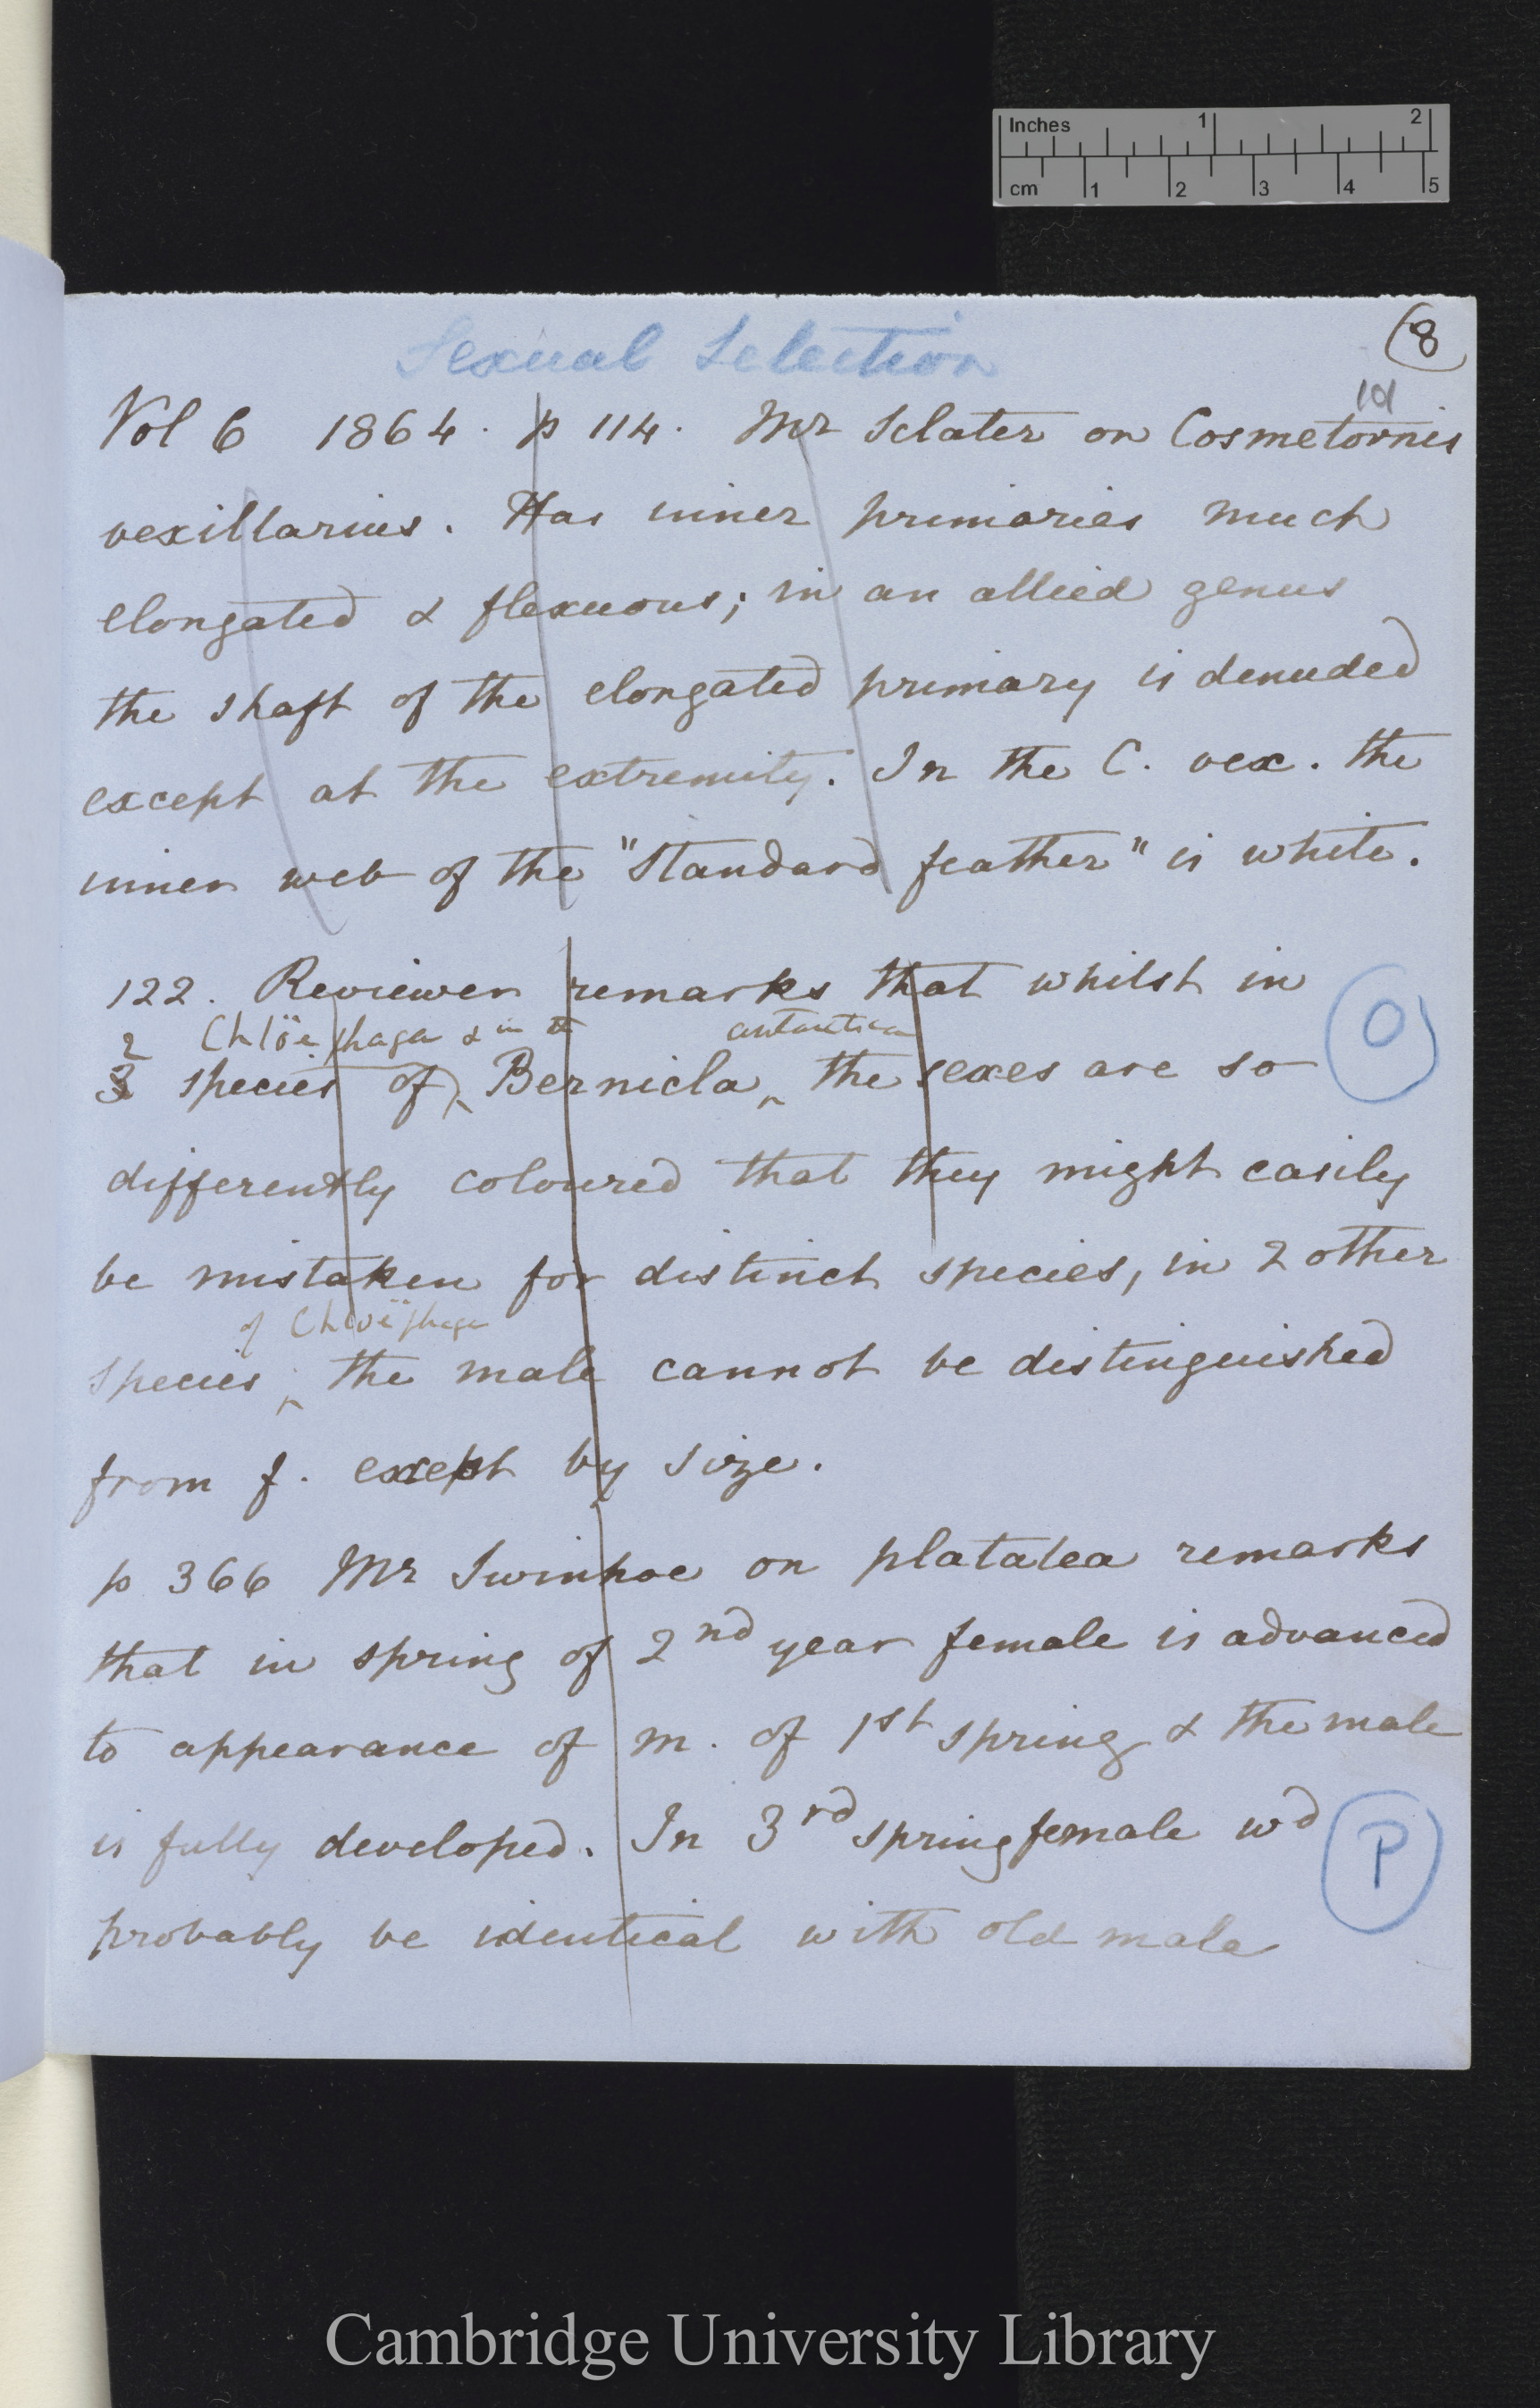 Inches 1 2
cm 1 2 3 4 5
8
Sexual Selection
101
Vol 6 1864. p 114. Mr Sclater on Cosmetornis
vexillarius. Has inner primaries much
elongated & flexuous; in an allied genus
the shaft of the elongated primary is denuded
except at the extremity. In the C. vex. the
inner web of the "Standard feather" is white.
122. Reviewer remarks that whilst in
2 Chlöephaga & in the antarctica
3 species of Bernicla the sexes are so
O
differently coloured that they might easily
be mistaken for distinct species, in 2 other
of Chloëphaga
species, the male cannot be distinguished
from f. except by size.
p 366 Mr Swinhoe on platalea remarks
that in spring of 2nd year female is advanced
to appearance of m. of 1st spring & the male
is fully developed. In 3rd spring female wd
P
probably be identical with old male
Cambridge University Library